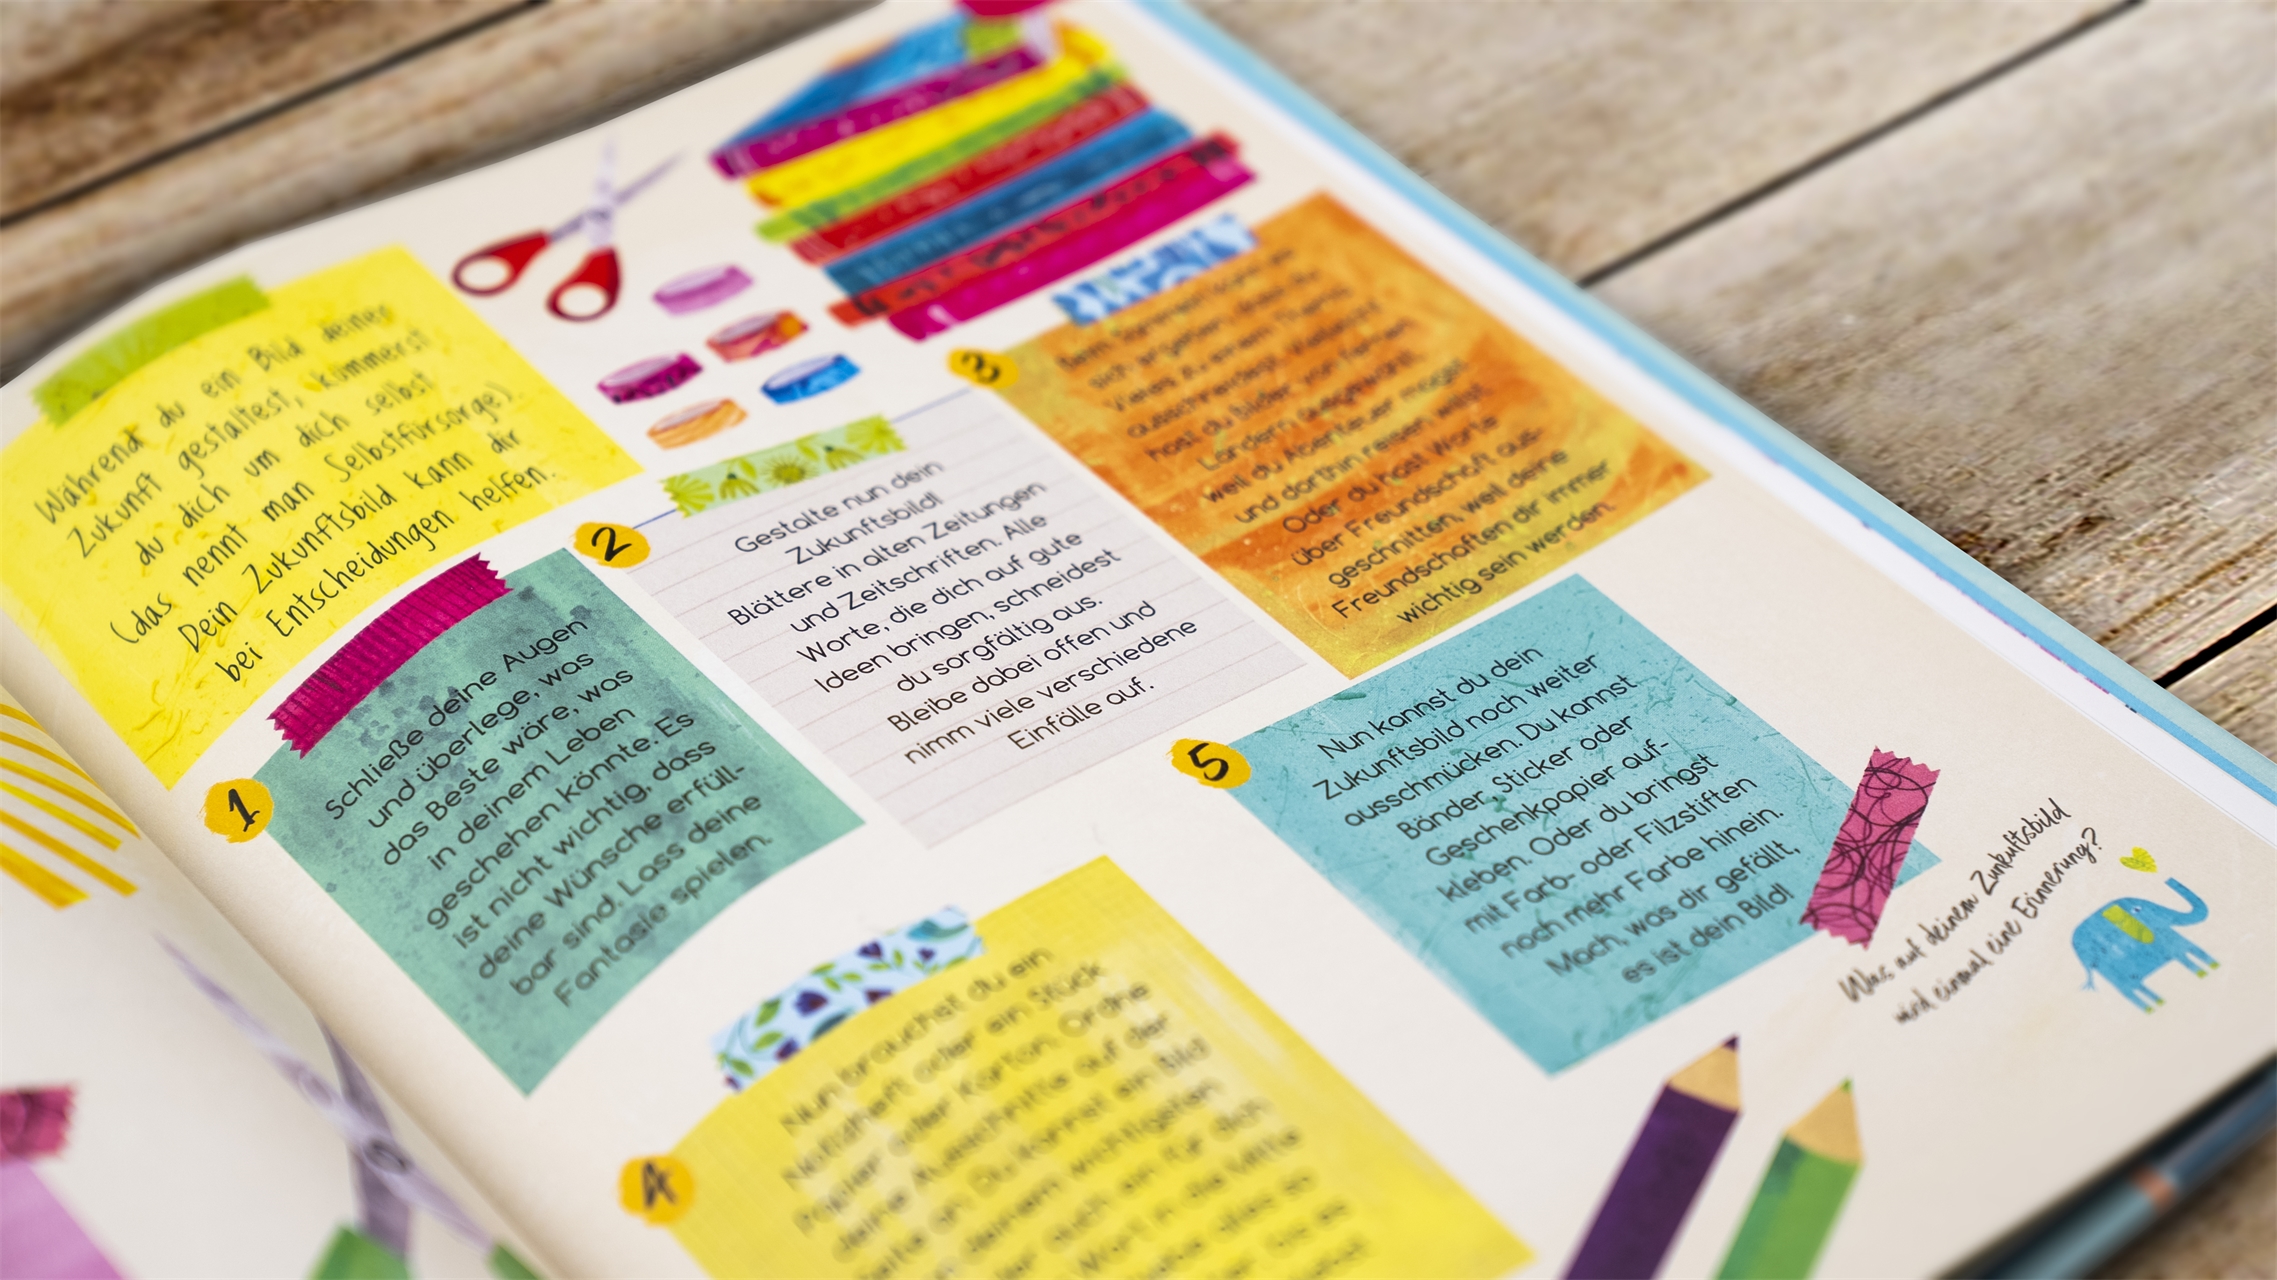 Während du ein Bild deiner
Zukunft gestaltest, kümmerst
du dich um dich selbst
(das nennt man Selbstfürsorge).
Dein Zukunftsbild kann dir
bei Entscheidungen helfen.
1
Schließe deine Augen
und überlege, was
das Beste wäre, was
in deinem Leben
geschehen könnte. Es
ist nicht wichtig, dass
deine Wünsche erfüll-
bar sind. Lass deine
Fantasie spielen.
2
Gestalte nun dein
Zukunftsbild!
Blättere in alten Zeitungen
und Zeitschriften. Alle
Worte, die dich auf gute
Ideen bringen, schneidest
du sorgfältig aus.
Bleibe dabei offen und
nimm viele verschiedene
Einfälle auf.
3
ausschneidest. Vielleicht
hast du Bilder von fernen
Ländern ausgewählt,
weil du Abenteuer magst
und dorthin reisen willst.
Oder du hast Worte
über Freundschaft aus-
geschnitten, weil deine
Freundschaften dir immer
wichtig sein werden.
4
Nun brauchst du ein
Notizheft oder ein Stück
Papier oder Karton. Ordne
deine Ausschnitte auf der
Seite an. Du kannst ein Bild
deinem wichtigsten
auch ein für dich
Wort in die Mitte
5
Nun kannst du dein
Zukunftsbild noch weiter
ausschmücken. Du kannst
Bänder, Sticker oder
Geschenkpapier auf-
kleben. Oder du bringst
mit Farb- oder Filzstiften
noch mehr Farbe hinein.
Mach, was dir gefällt,
es ist dein Bild!
Was auf deinem Zunkuftsbild
wird einmal eine Erinnerung?